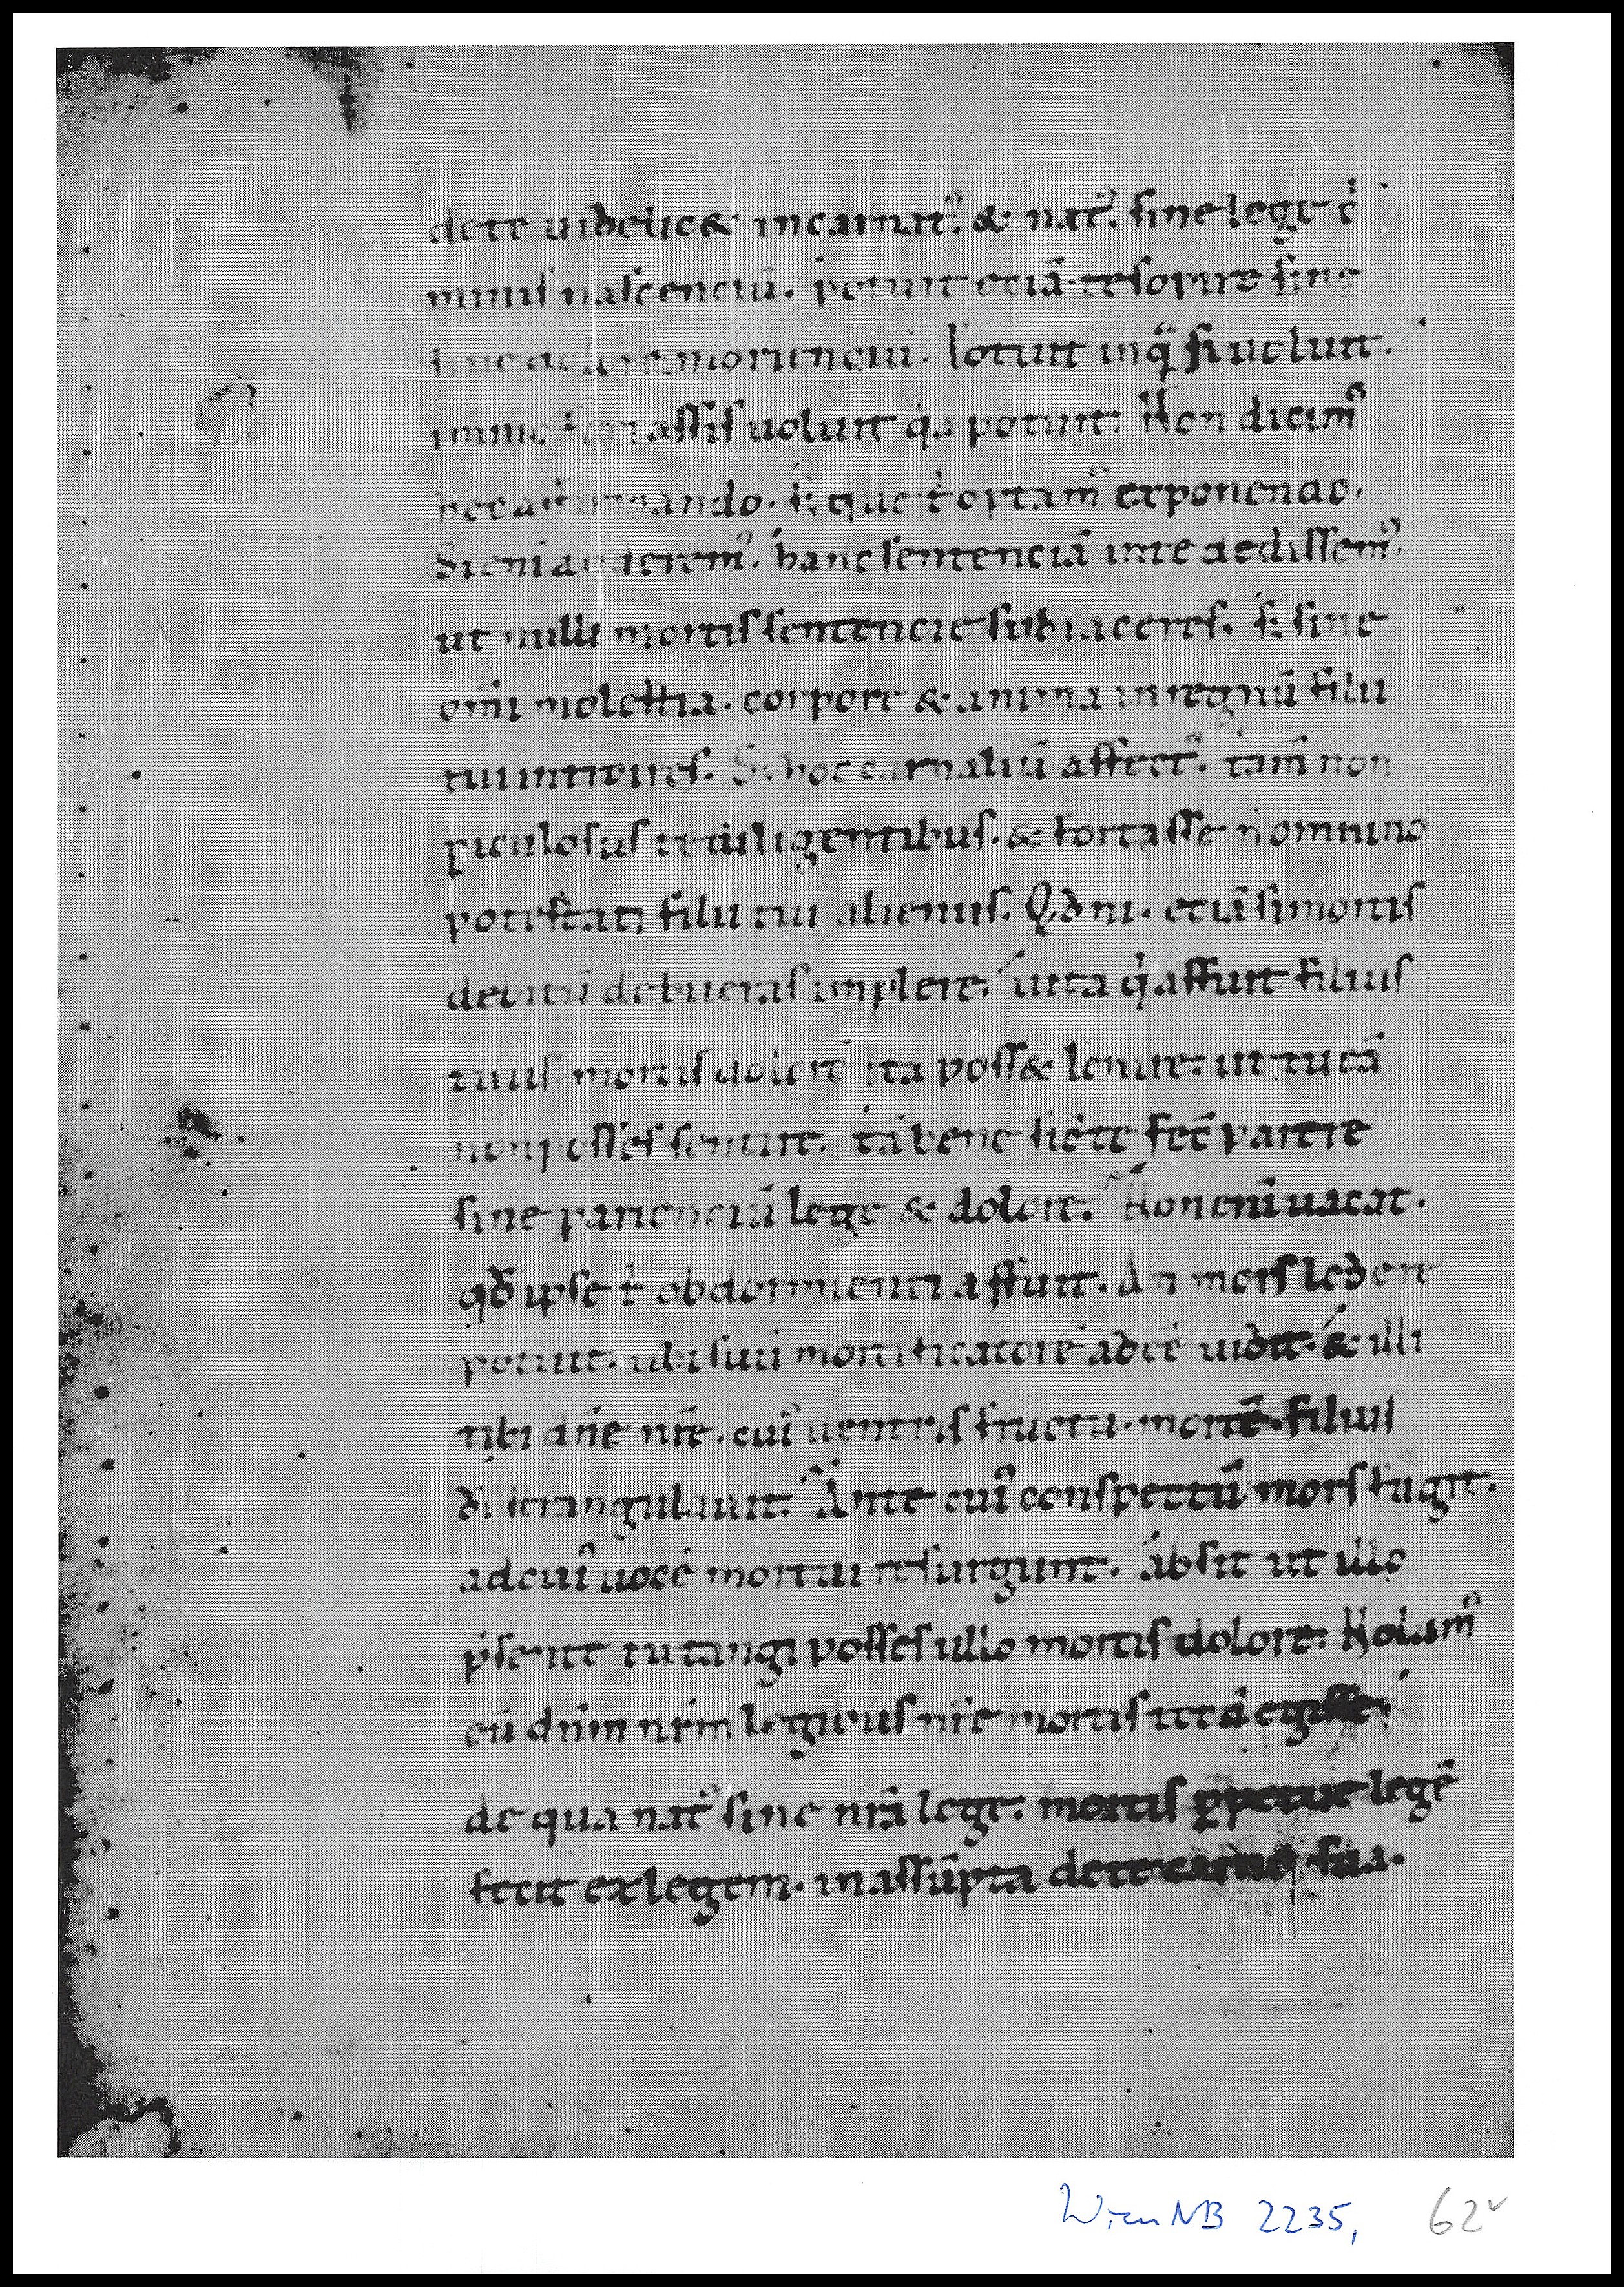 de te uidelic& incarnat᷒. & nat᷒. sine lege c̓
minis nascenciū. potuit eciā te sopire sine
sine dolore moriencíu. Potuit inquā si uoluit.
immo fortassis uoluit q̇a potuit. Non dicim᷒
hec affirmando. s; que t̓ optam᷒ exponendo.
Si eni auderem᷒. hanc sentenciā in te dedissem᷒.
ut nulli mortis sentencie subiaceres. s; sine
om̄i molestia. corpore & anima in regnū filii
tui introires. S; hoc carnaliū affect᷒. tam̄ non
ꝑiculosus te diligentibus. & fortasse n̄ omnino
potestati filii tui alienus. Qđ ni. eciā si mortis
debitū debueras implere. iuxta q̇ affuit filius
tuus mortis dolorē ita poss& lenire. ut tu eā
non posses sentire. tā bene sic̄ te fec̄ parere
sine parienciū lege & dolore. Non eni uacat.
qđ ipse t̓ obdormienti affuit. An mors ledere
potuit. ubi suū mortificatorē adeē uidit. & illi
tibi dn̄e nr̄e. cui᷒ uentris fructu. mortē. filius
dī strangulauit. Ante cui᷒ conspectū mors fugit.
ad cui᷒ uocē mortui resurgunt. absit ut illo
p̄sente tu tangi posses ullo mortis dolore. Nolam᷒
eū dn̄m nr̄m legibus nr̄e mortis
de qua nat᷒ sine nrā lege. mortis ꝑpetue legē
fecit exlegem. in assūpta de te carne sua.
Wien NB 2235, 62v